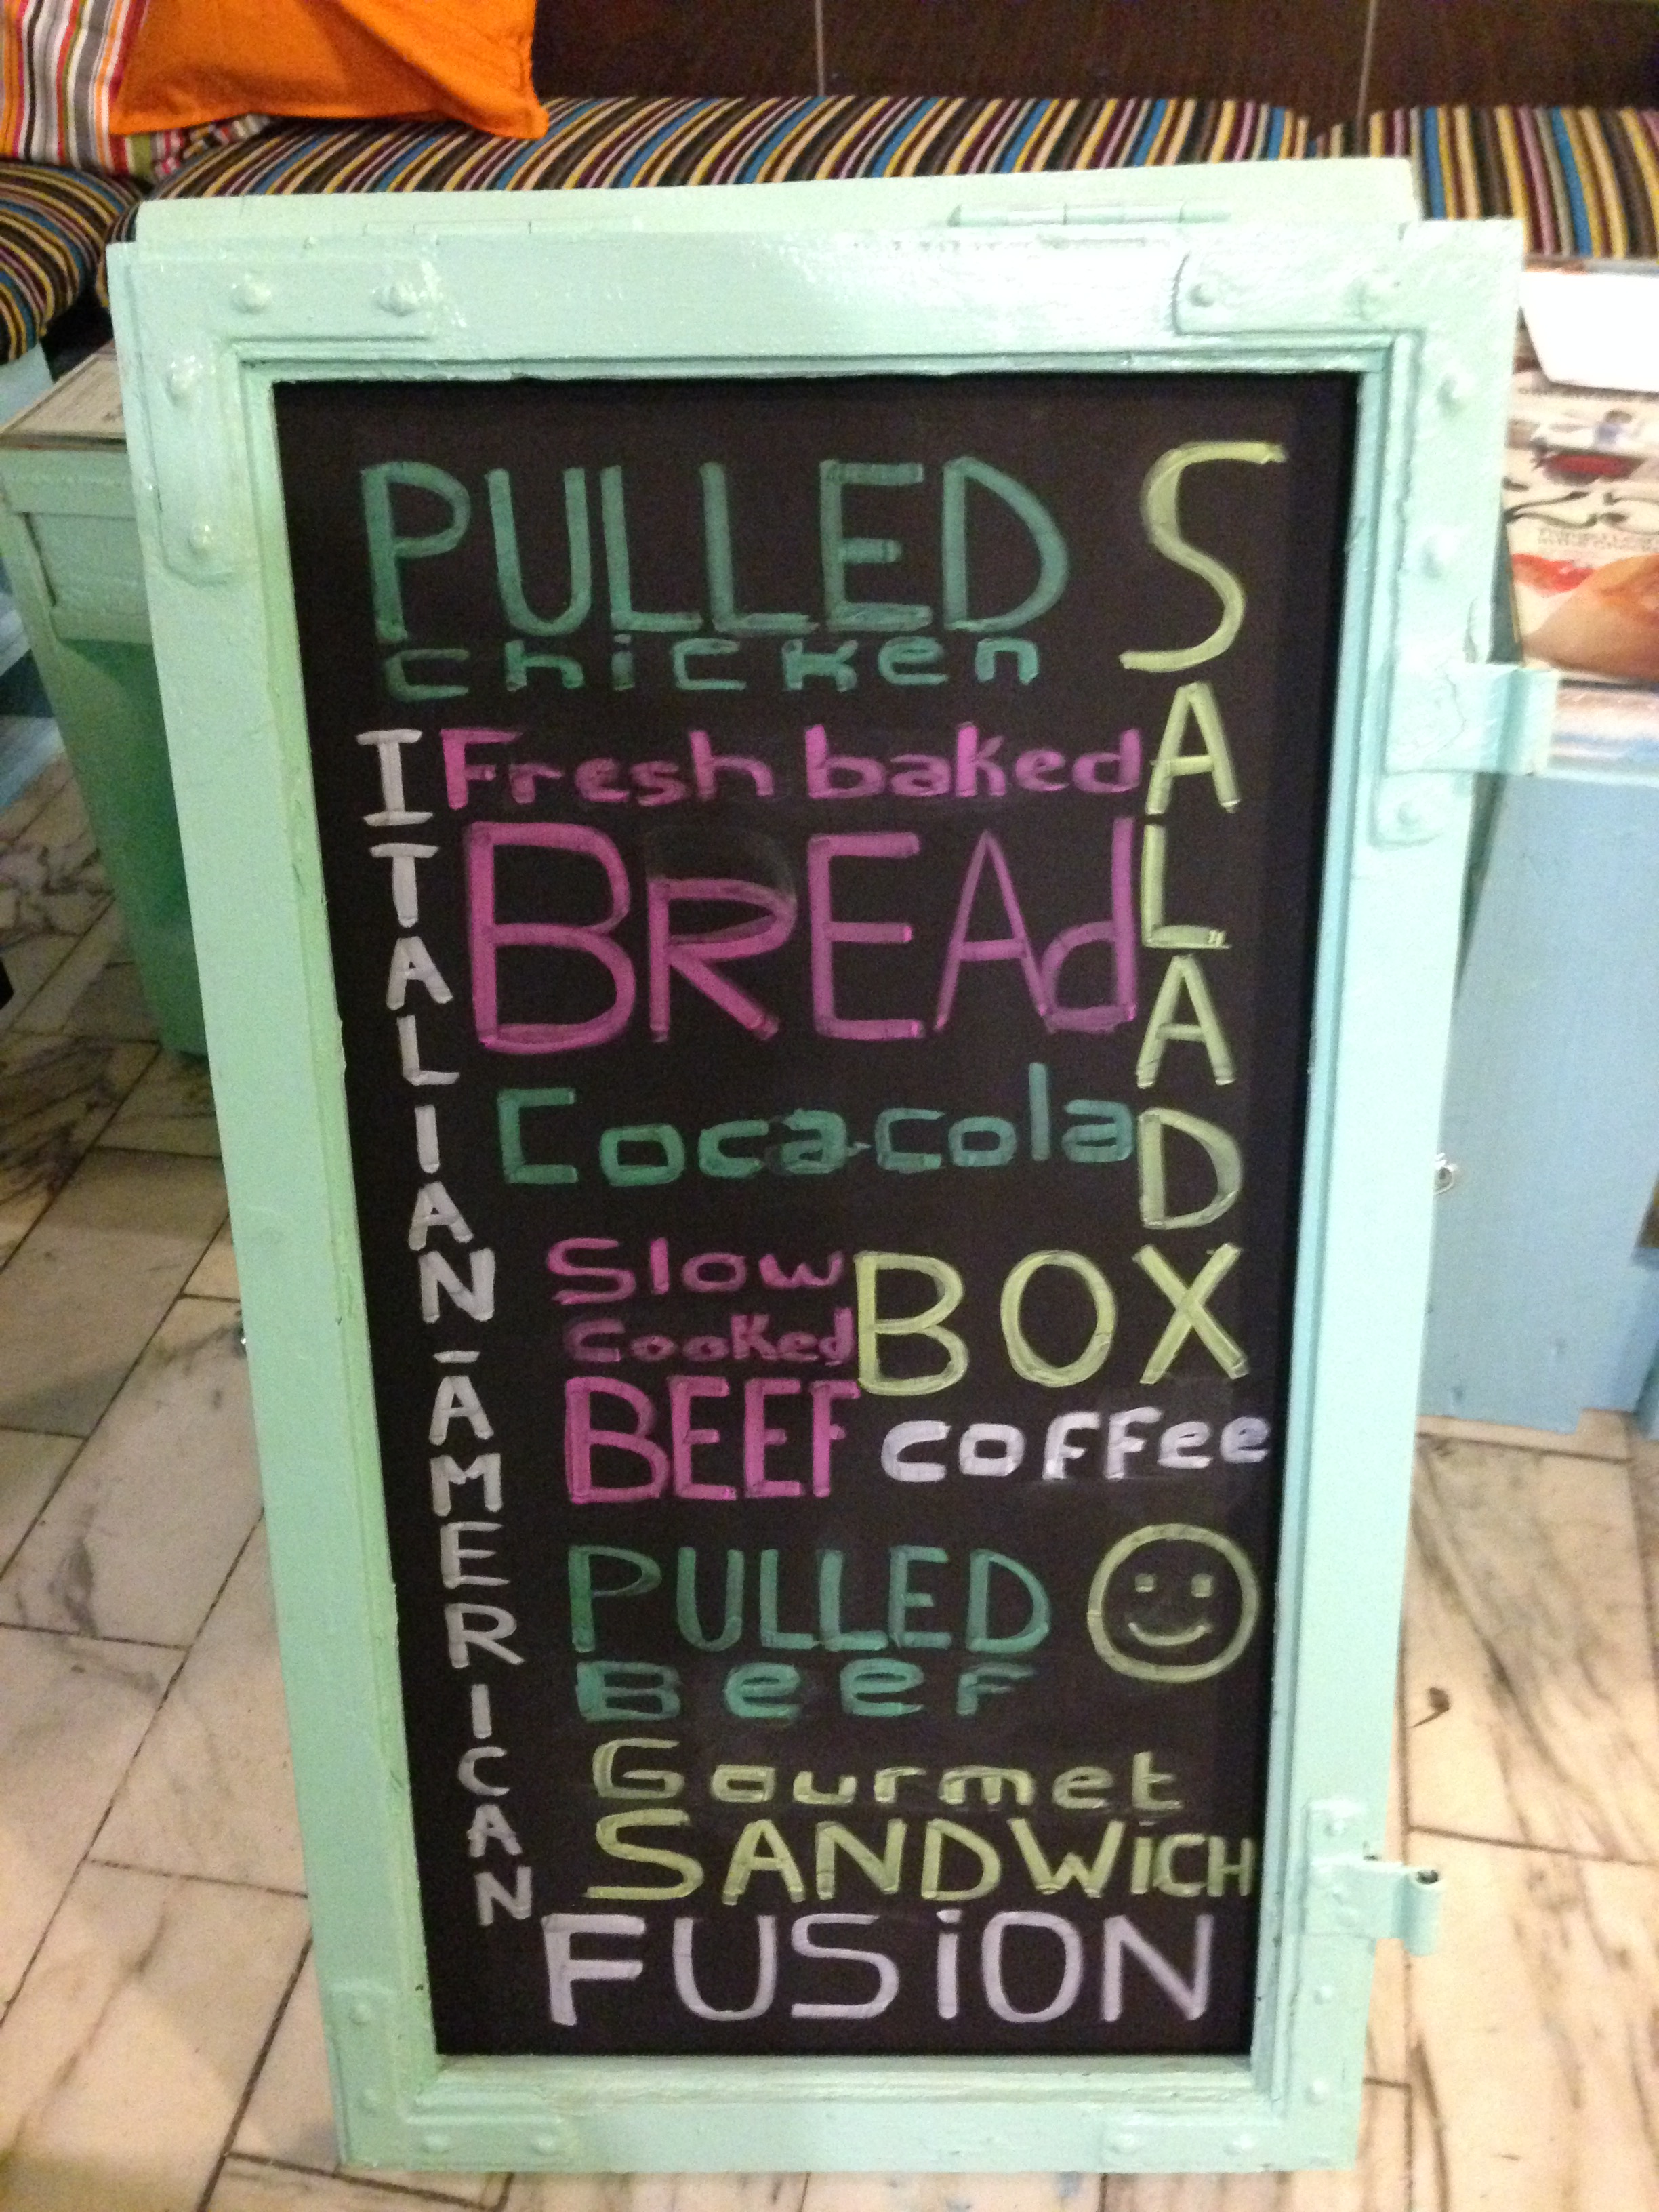 PULLED
chicken
SALAD
ITALIAN-AMERICAN
Fresh baked
BREAd
Coca-cola
Slow
cooked
BEEF
BOX
coffee
PULLED
Beef
Gourmet
SANDWiCH
FUSiON